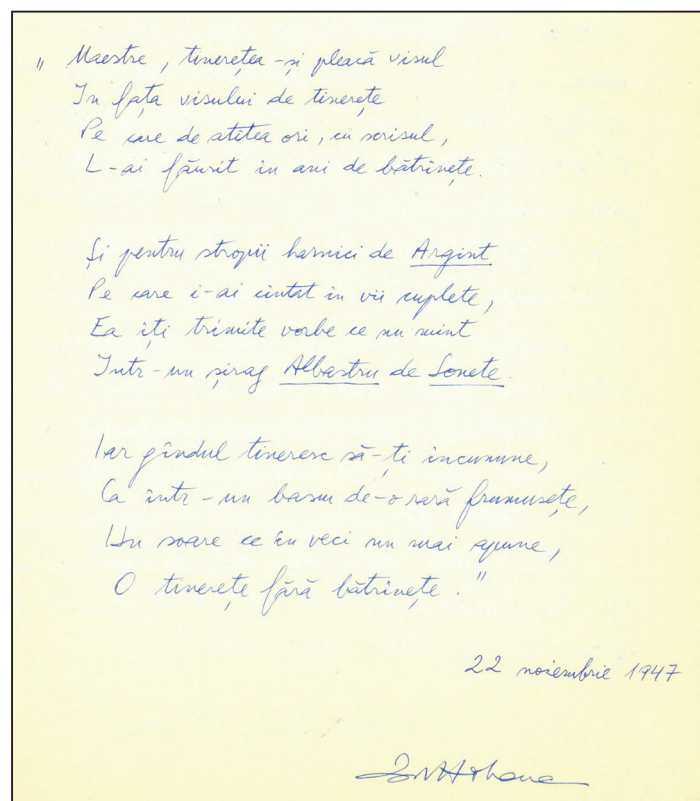 " Maestre, tinerețea-și pleacă visul
In fața visului de tinerețe
Pe care de atîtea ori, cu scrisul,
L-ai făurit in ani de bătrînețe.
Și pentru stropii harnici de Argint
Pe care i-ai cîntat in vii cuplete,
Ea iți trimite vorbe ce nu mint
Intr-un șirag Albastru de Sonete.
Iar gîndul tineresc să-ți incunune,
Ca într-un basm de-o rară frumusețe,
Un soare ce în veci nu mai apune,
O tinerețe fără bătrînețe."
22 noiembrie 1947